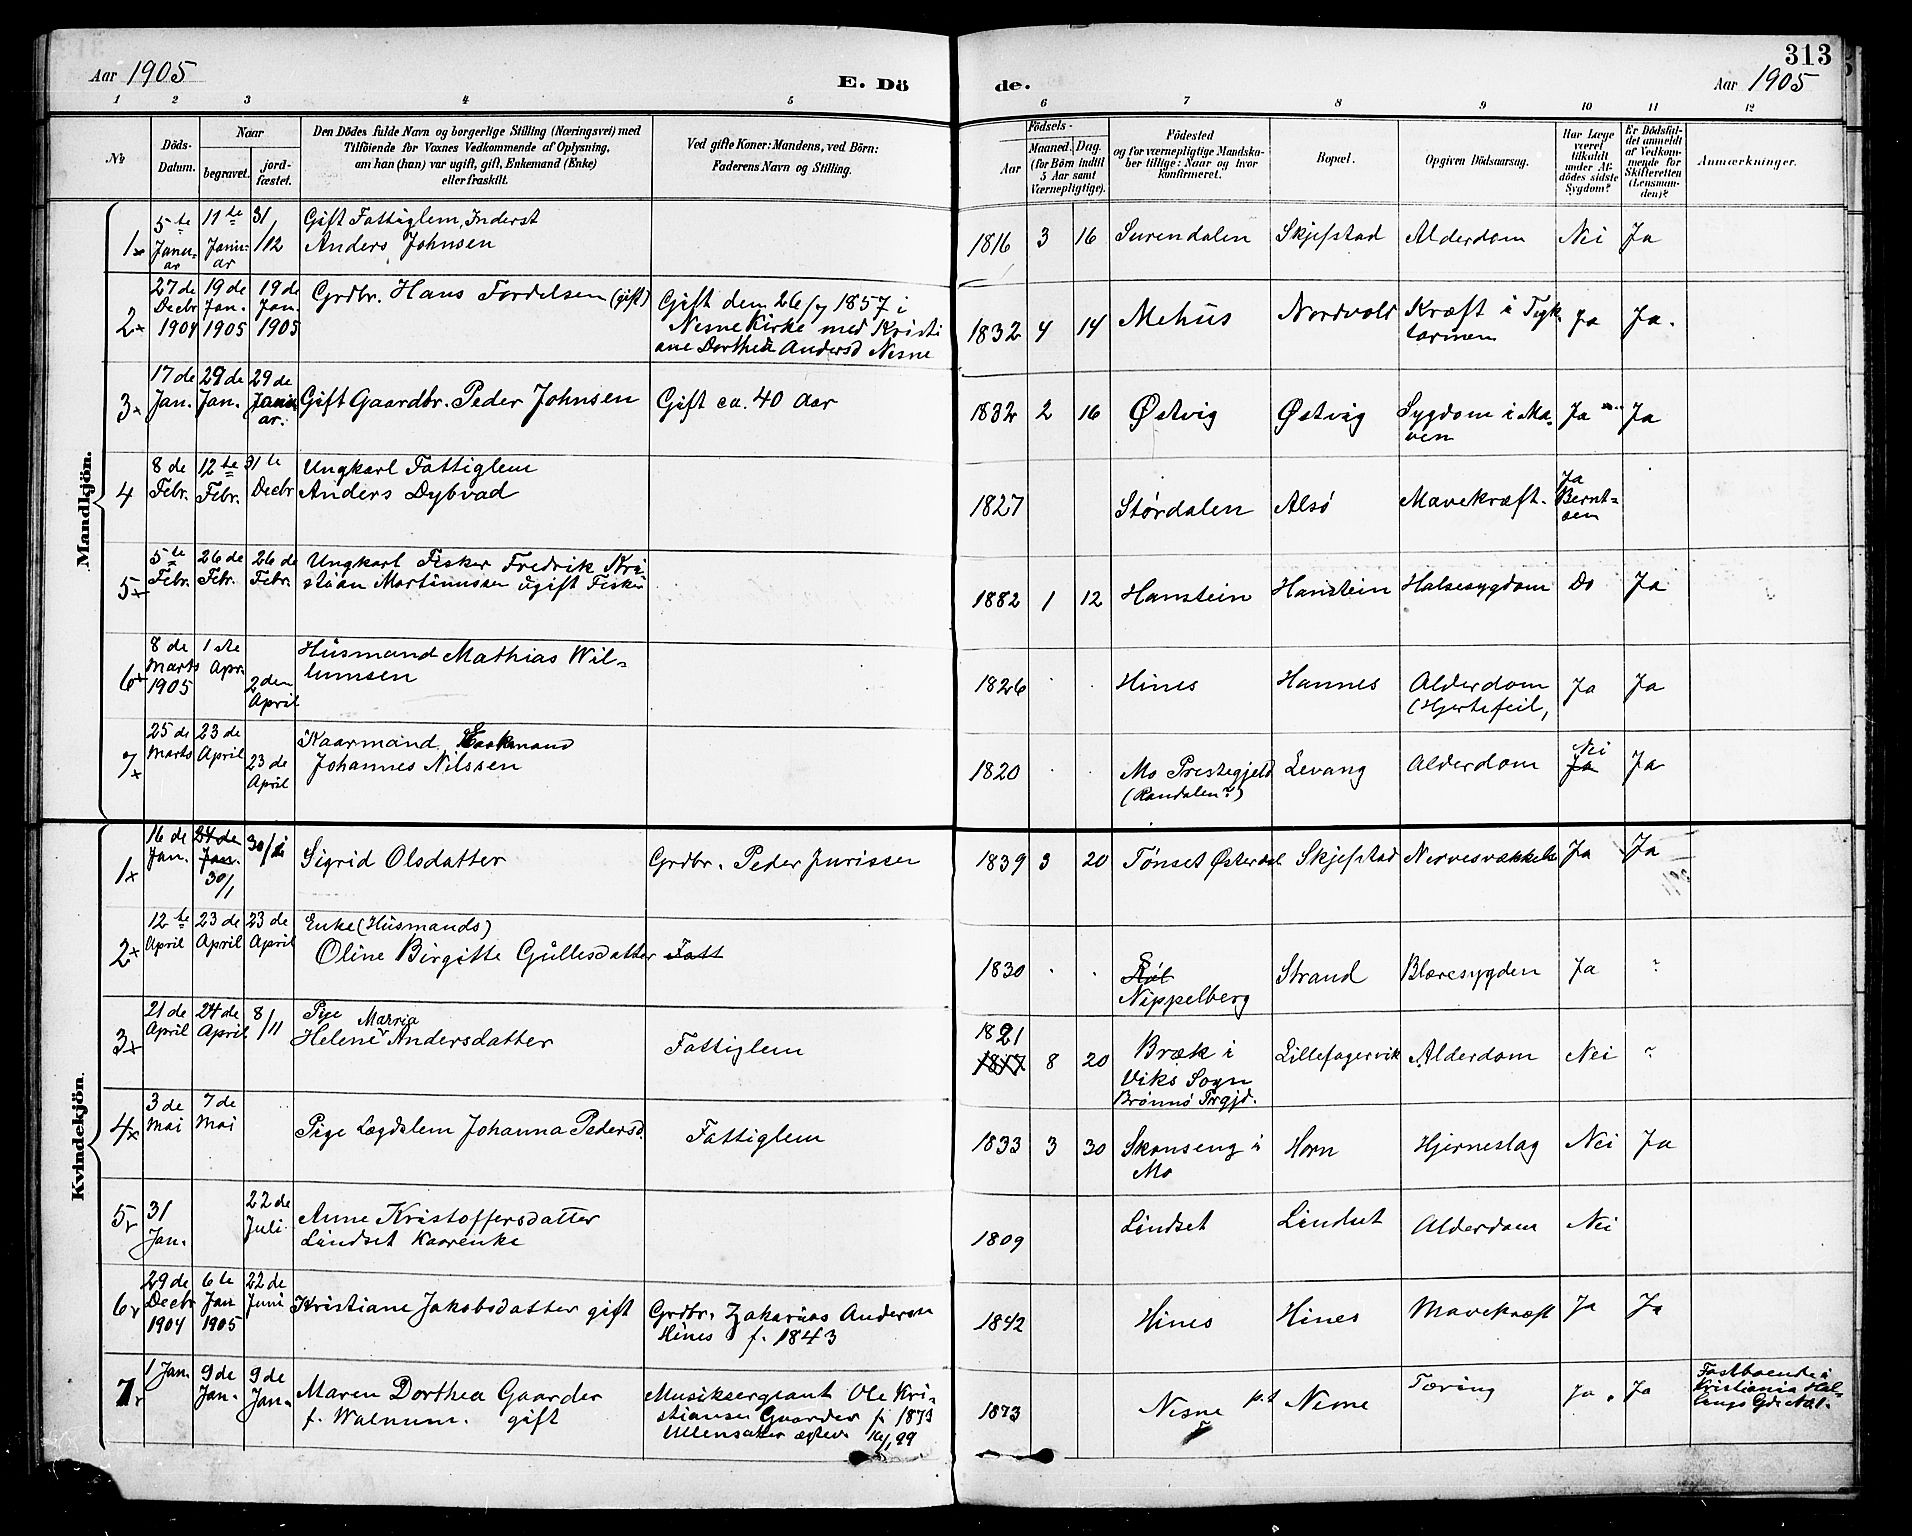 313
Aar 1905
E. Dö
de.
Aar 1905
1 2 3 4 5
6 7 8 9 10 11 12
No
Döds-
Datum.
Naar
begravet.
jord-
fæstet.
Den Dödes fulde Navn og borgerlige Stilling (Næringsvei) med
Tilföiende for Voxnes Vedkommende af Oplysning,
om han (hun) var ugift, gift, Enkemand (Enke)
eller fraskilt.
Ved gifte Koner: Mandens, ved Börn:
Faderens Navn og Stilling.
Födsels-
Aar
Maaned.
Dag.
(for Börn indtil
5 Aar samt
Værnepligtige).
Födested
og for værnepligtige Mandska-
ber tillige: Naar og hvor
konfirmeret.
Bopæl.
Opgiven Dödsaarsag.
Har Læge
været
tilkaldt
under Af-
dödes sidste
Sygdom?
Er Dödsfal-
det anmeldt
af Vedkom-
mende for
Skifteretten
(Lensman-
den)?
Anmærkninger.
Mandkjön.
1x
5te
Janu-
ar
11te
Janu-
ar
31
/12
Gift Fattiglem, Inderst
Anders Johnsen
1816 3 16 Surendalen Skjefstad Alderdom Nei Ja
2x
27de
Decbr
1904
19de
Jan.
1905
19de
Jan.
1905
Grdbr. Hans Tordelsen (gift)
Gift den 26/7 1857 i
Nesne Kirke med Kristi
ane Dorthea Andersd Nesne
1832 4 14 Mehus Nordvold Kræft i Tyk-
tarmen
Ja Ja.
3x
17de
Jan.
29de
Jan.
29de
Janu
ar.
Gift Gaardbr. Peder Johnsen
Gift ca. 40 Aar
1832 2 16 Østvig Østvig Sygdom i Ma-
ven
Ja Ja
4
8de
Febr.
12te
Febr.
31te
Decbr
Ungkarl Fattiglem
Anders Dybvad
1827 Størdalen Alsø Mavekræft.
Ja
Bernt-
sen
5x
5te
Febr.
26de
Febr.
26de
Febr.
Ungkarl Fisker Fredrik Kri
stian Martinussen ugift Fisker
1882 1 12 Hanstein Hanstein Halsesygdom Do Ja
6x
8de
Marts
1905
1ste
Apr.
2den
April
Husmand Mathias Wil-
lumsen
1826 . . Hines Hannes Alderdom
(Hjertefeil,
Ja Ja
7x
25de
Marts
23de
April
23de
April
Kaarmand.
Johannes Nilssen
1820 . . Mo Prestegjeld
(Randalen?)
Levang Alderdom
Nei
Ja
Ja
Kvindekjön.
1x
16de
Jan.
24de
Jan.
30/1
30/1
Sigrid Olsdatter
Grdbr. Peder Jurissen
1839 3 20 Tønset Østerdal Skjefstad Nervesvækkelse Ja Ja
2x
12te
April
23de
April
23de
April
Enke (Husmands)
Oline Birgitte Gullesdatter
Fatt
1830 . .
Nippelberg
Strand Blæresygdom Ja ?
3x
21de
April
24de
April
8/11
Pige
Marria
Helene Andersdatter
Fattiglem
1821
1817 8 20 Bræk i
Viks Sogn
Brønnø Prgjd.
Lillefagervik Alderdom Nei ?
4x
3de
Mai
7de
Mai
Pige Lægdslem Johanna Pedersd.
Fattiglem
1833 3 30 Skonseng i
Mo
Horn Hjerneslag Nei Ja
5
31
Jan.
22de
Juli
Anne Kristoffersdatter
Lindset Kaarenke
1809 Lindset Lindset Alderdom Nei
6
29de
Decbr
1904
6te
Jan
1905
22de
Juni
Kristiane Jakobsdatter gift
Grdbr. Zakarias Andersen
Hines f. 1843
1842 Hines Hines Mavekræft Ja Ja
7
1 Jan.
9de
Jan.
9de
Jan.
Maren Dorthea Gaarder
f. Walnum. gift
Musiksergeant Ole Kri-
stiansen Gaarder f. 1873
Ullensaker
1873 Nesne p.t Nesne Tæring Ja Ja
Fastboende i
Kristiania Hal-
lings Gd